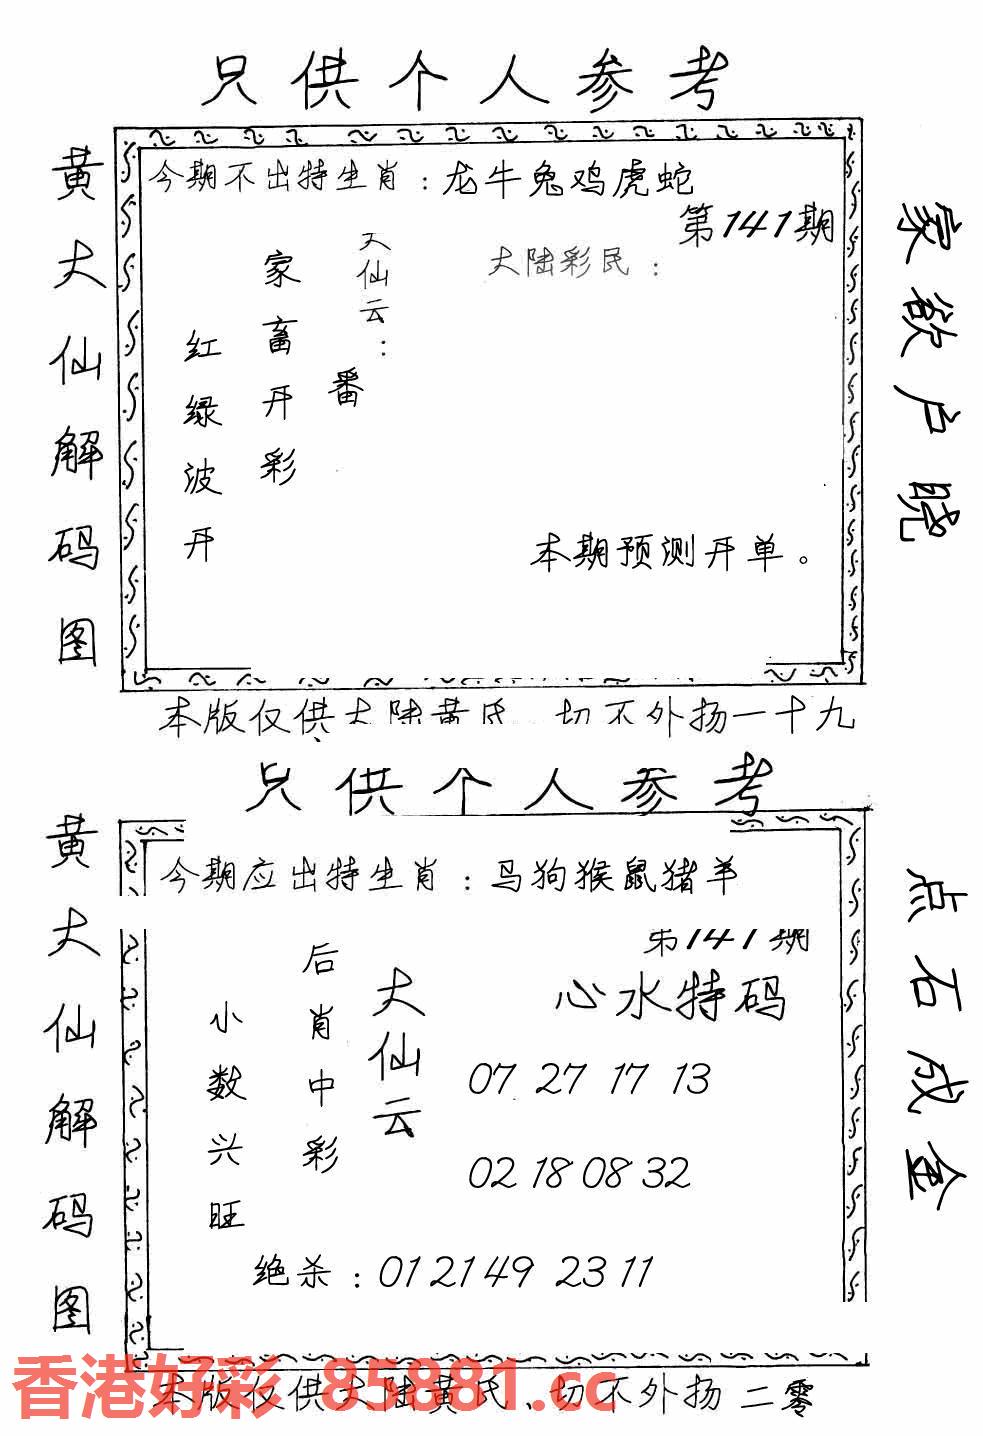 只供个人参考
黄大仙解码图
今期不出特生肖：龙牛兔鸡虎蛇
第141期
大陆彩民：
大仙云：
番
家畜开彩
红绿波开
本期预测开单。
家欲户晓
本版仅供大陆黄氏、切不外扬一十九
只供个人参考
黄大仙解码图
今期应出特生肖：马狗猴鼠猪羊
第141期
心水特码
大仙云
后肖中彩
小数兴旺
07 27 17 13
02 18 08 32
绝杀：01 21 49 23 11
点石成金
香港好彩 85881.cc
本版仅供大陆黄氏、切不外扬二零